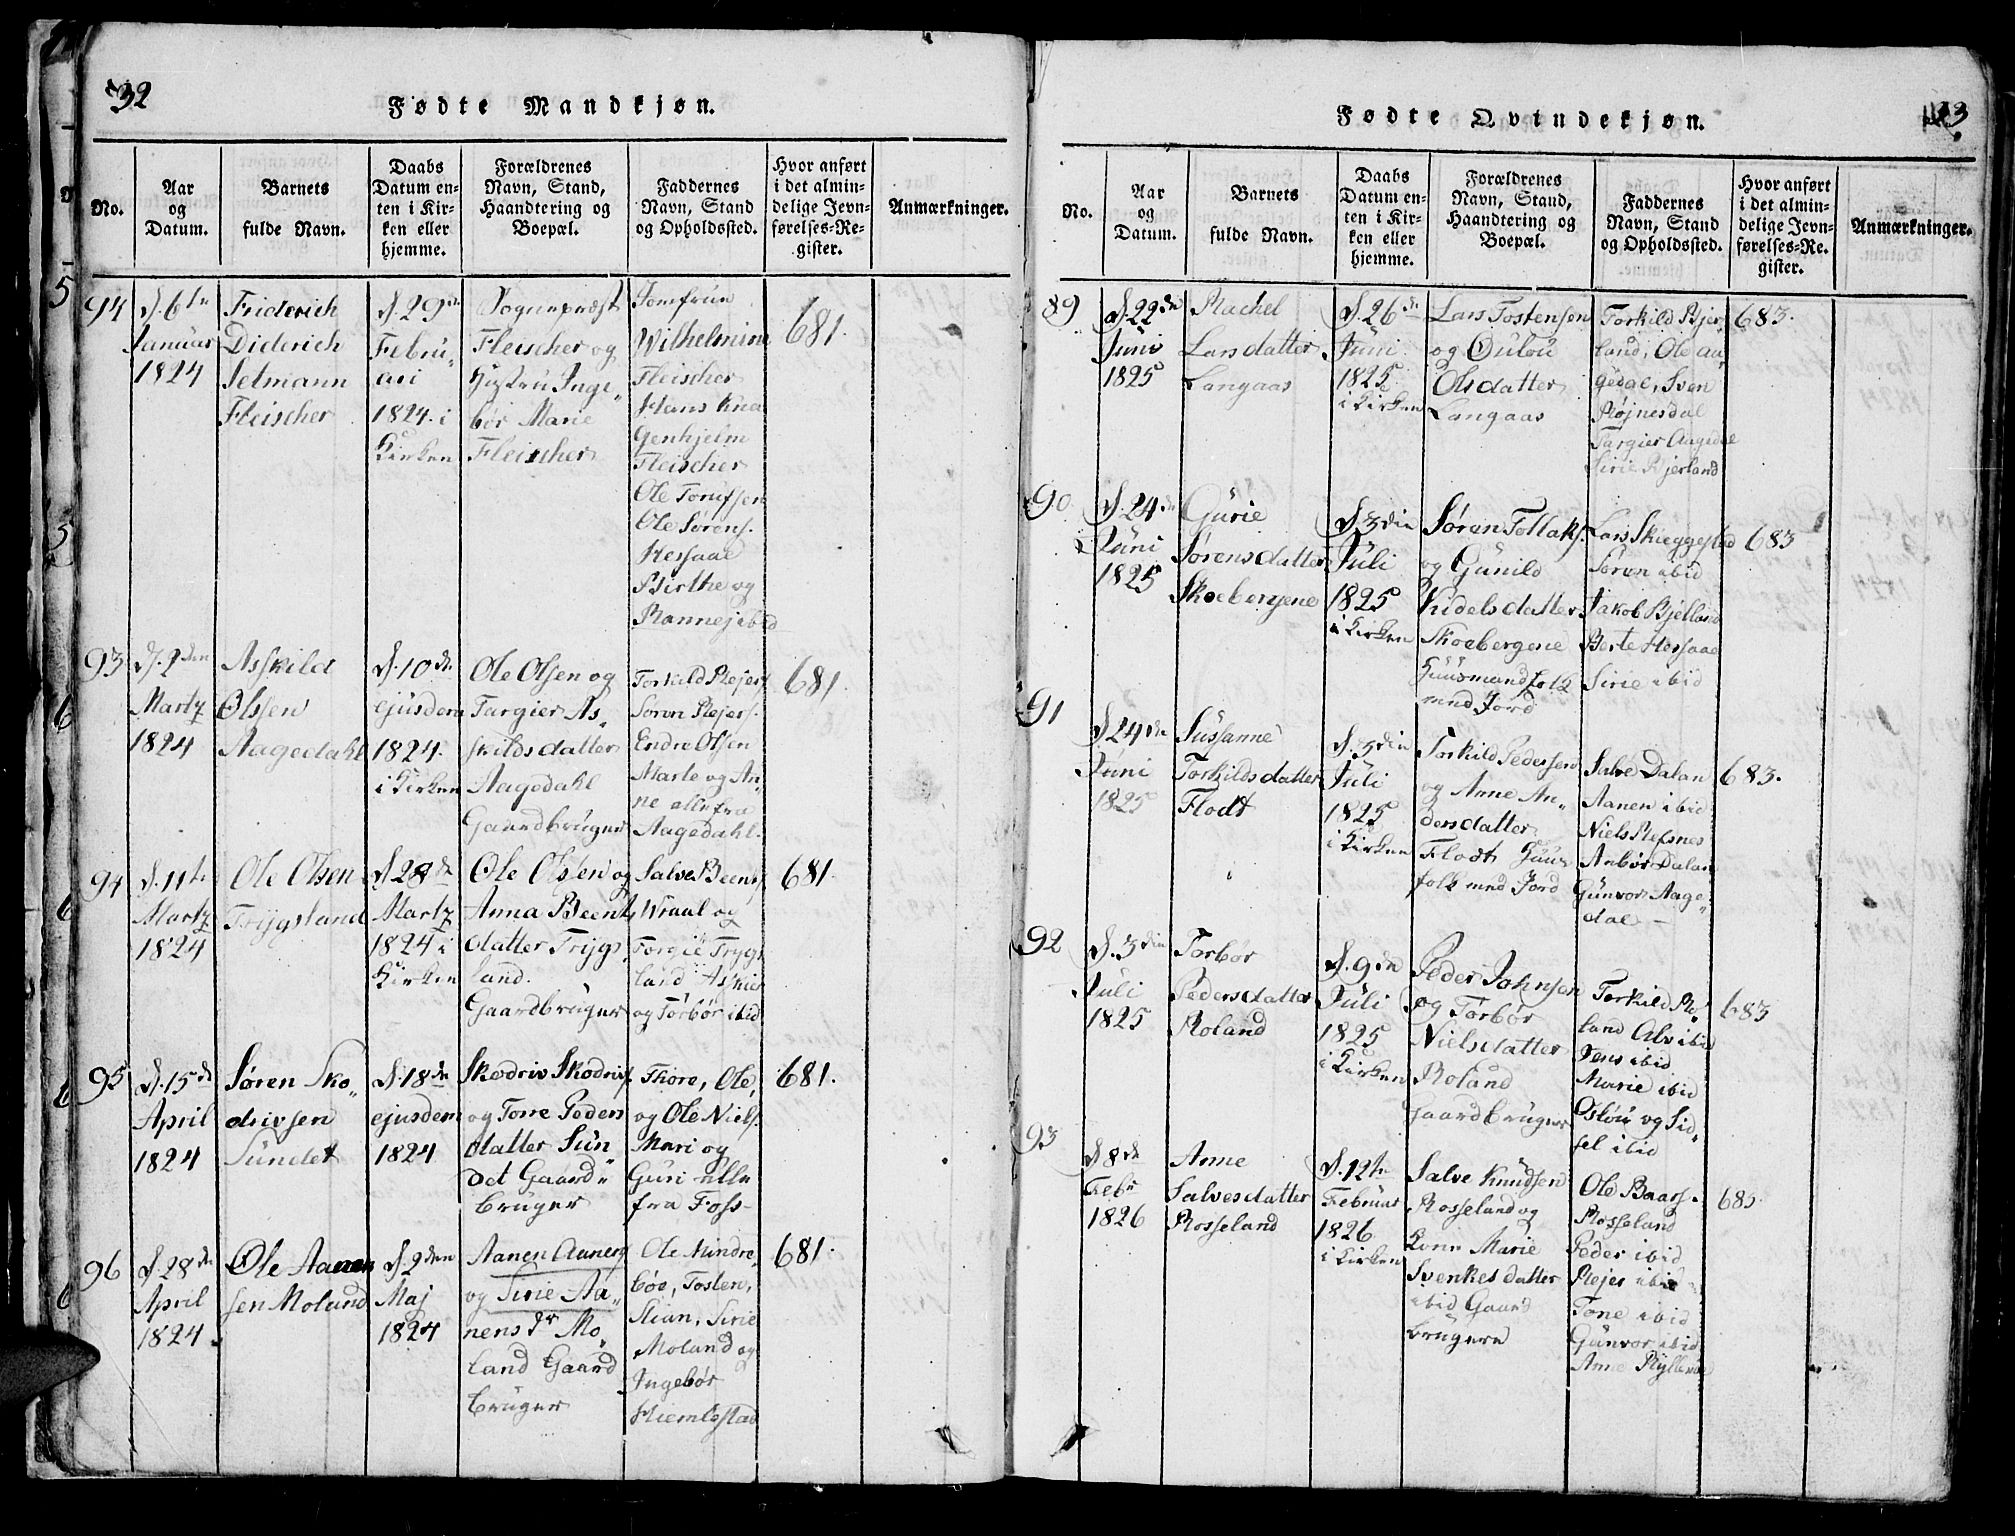 32
Fødte Mandkjøn.
No.
Aar
og
Datum.
Barnets
fulde Navn.
Daabs
Datum en-
ten i Kir-
ken eller
hjemme.
Forældrenes
Navn, Stand,
Haandtering og
Boepæl.
Faddernes
Navn, Stand
og Opholdssted.
Hvor anført
i det almin-
delige Jevn-
førelses-Re-
gister.
Anmærkninger.
94
d. 6te
Januar
1824
Friderich
Diderich
Selmann
Fleischer
d. 29de
Febru„
ari
1824. i
Kirken
Sognepræst
Fleischer og
Hustru Inge„
bør Marie
Fleischer
Jomfrue
Wilhelmine
Fleischer
Hans Kna
genhjelm
Fleischer
Ole
Ole Sørens.
Hessaae
Birthe og
681.
93
d. 2den
Martz
1824
Asskild
Olssen
Aagedahl
d. 10de
ejusdem
1824.
i Kirken
Ole Olsen og
Targier As„
skildsdatter
Aagedahl
Gaardbruger
Torkild Rejers.
Soren Rejers.
Endre Olsen
Marte og An„
ne alle fra
Aagedahl.
681.
94
d. 11te
Martz
1824
Ole Olsen
Trygsland
d. 28de
Martz
1824 i
Kirken
Ole Olsen og
Anna Beent
datter Trygs„
land.
Gaardbruger
Salve Beents.
Wraal og
Torgie Trygs
land Asskier
og Torbør ibid
681.
95
d. 15de
April
1824
Søren Sko„
drivsen
Sundet
d. 18de
ejusdem
1824
Skodriv Skodrivs.
og Torre Peders
datter Sun„
det Gaard„
bruger
Thore, Ole,
og Ole Niels.
Mari og
Guri alle
fra Foss–
681.
96
d. 28de
April
1824.
Ole Aanen
sen Moland
d. 2den
Maj
1824
Aanen Aanens.
og Sirie Aa„
nensdr Mo„
land Gaard
bruger
Ole Mindre„
bøe, Tosten,
Stian, Sirie
Moland og
Ingebør
Hiemlestad
681.
33.
Fødte Qvindekjøn.
No.
Aar
og
Datum.
Barnets
fulde Navn.
Daabs
Datum en-
ten i Kir-
ken eller
hjemme.
Forældrenes
Navn, Stand,
Haandtering og
Boepæl.
Faddernes
Navn, Stand
og Opholdssted.
Hvor anført
i det almin-
delige Jevn-
førelses-Re-
gister.
Anmærkninger.
89
d. 22de
Juni
1825
Rachel
Larsdatter
Langaas
d. 26de
Juni
1825
i Kirken
Lars Tostensen
og Gulou
Olsdatter
Langaas
Torkild Bjer
land, Ole Aa„
gedal, Sven
Røjnesdal
Targier Aagedal
Sirie Bjerland
683.
90
d. 24de
Juni
1825
Gurie
Sørensdatter
Skoebergene
d. 3die
Juli
1825
i Kirken
Søren Tollaks.
og Gunild
Kidelsdatter
Skoebergene
Huusmandfolk
med Jord
Lars Skieggestad
Søren ibid
Jakob Bjelland
Berte Hessaae
Sirie ibid
683
91
d. 24de
Juni
1825
Sussanne
Torkildsdatter
Flodt
d. 3die
Juli
1825
i Kirken
Torkild Pedersen
og Anne An„
dersdatter
Flodt Huus
folk med Jord
Salve Dalan
Aanen ibid
Niels Refsnes
Anbør Dalan
Gunvor Aage„
dal –
683.
92
d. 3die
Juli
1825
Torbør
Pedersdatter
Roland
d. 9de
Juli
1825
i Kirken
Peder Johnsen
og Torbør
Nielsdatter
Roland
Gaardbruger
Torkild Ro„
land Alv ibid
Jens ibid
Marie ibid
Oslou og Sid„
sel ibid
683
93
d 8de
Febr
1826
Anne
Salvesdatter
Rosseland
d. 12te
Februar
1826
i Kirken
Salve Knudsen
Rosseland og
Karin Marie
Svenkesdatter
ibid Gaard
brugere
Ole Baars.
Rosseland
Peder ibid
Rejer ibid
Tone ibid
Gunvor ibid
Anne
685.